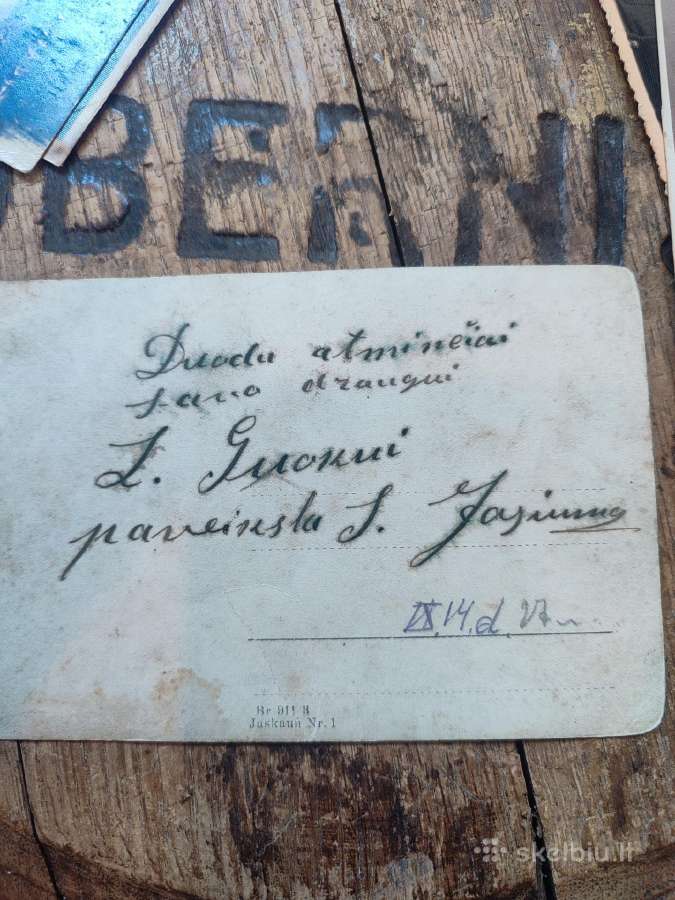 OBERNI
Duodu atminčiai
savo draugui
L. Guokui
paveikslą J. Jasiuną
IX.14.d. 27 m.
Br 911 B
Jaskauň Nr. 1
skelbiu.lt